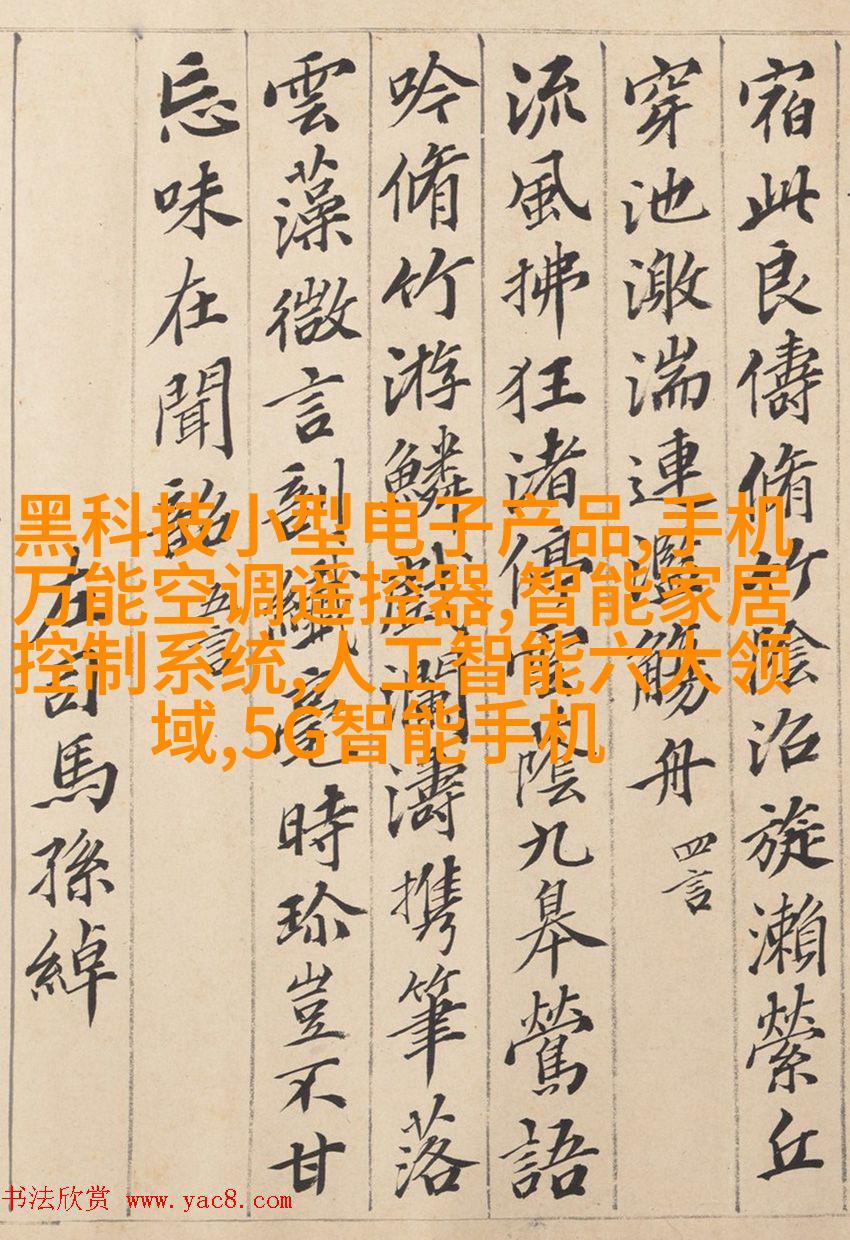 宿此良儔脩竹陰沼旋瀨縈丘
穿池激湍連濫觴舟 四言
流風拂狂渚停雲蔭九皋鶯語
吟脩竹游鱗戲瀾濤携筆落
雲藻微言剖纖毫時珎豈不甘
忘味在聞韶 五言
左司馬孫綽
黑科技小型电子产品,手机
万能空调遥控器,智能家居
控制系统,人工智能六大领
域,5G智能手机
书法欣赏 www.yac8.com